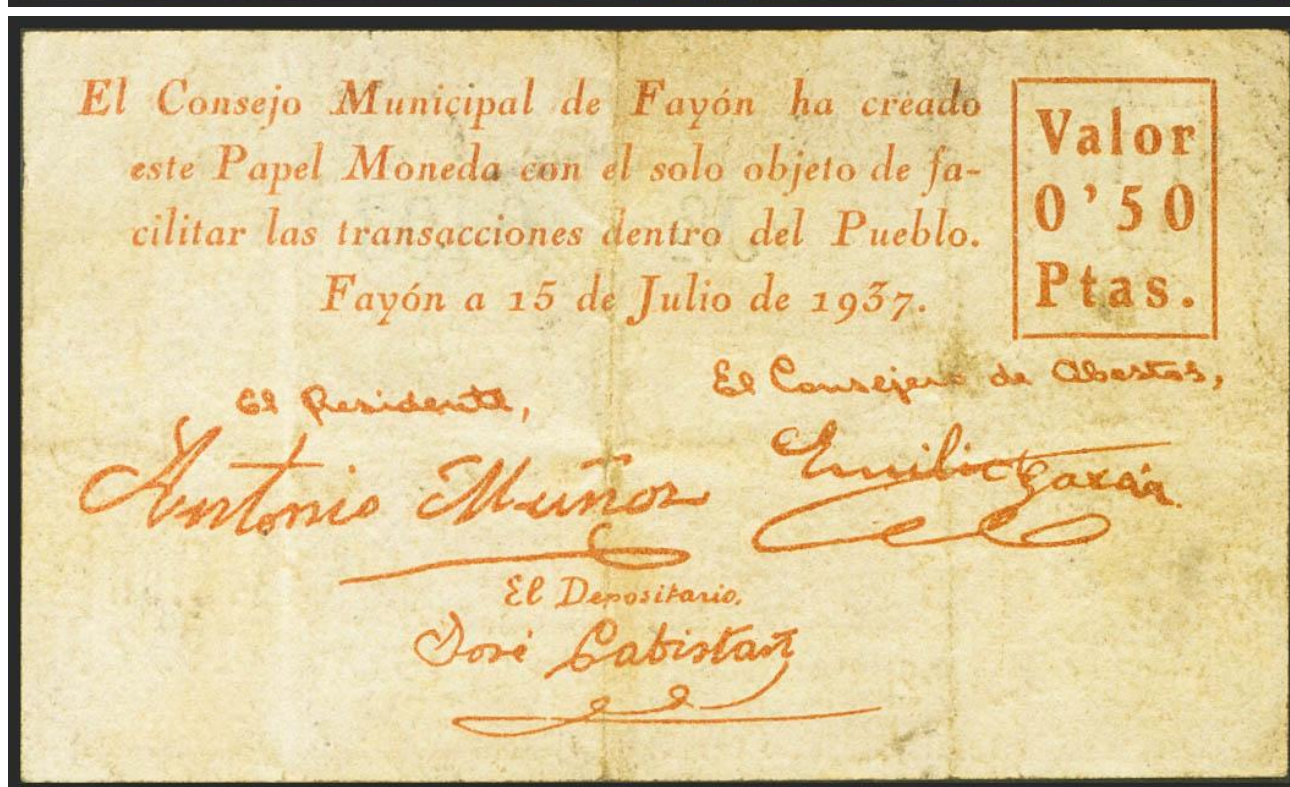 El Consejo Municipal de Fayón ha creado
este Papel Moneda con el solo objeto de fa-
cilitar las transacciones dentro del Pueblo.
Fayón a 15 de Julio de 1937.
Valor
0'50
Ptas.
El Presidente,
Antonio Muñoz
El Consejero de Abastos,
Emilio
El Depositario,
José